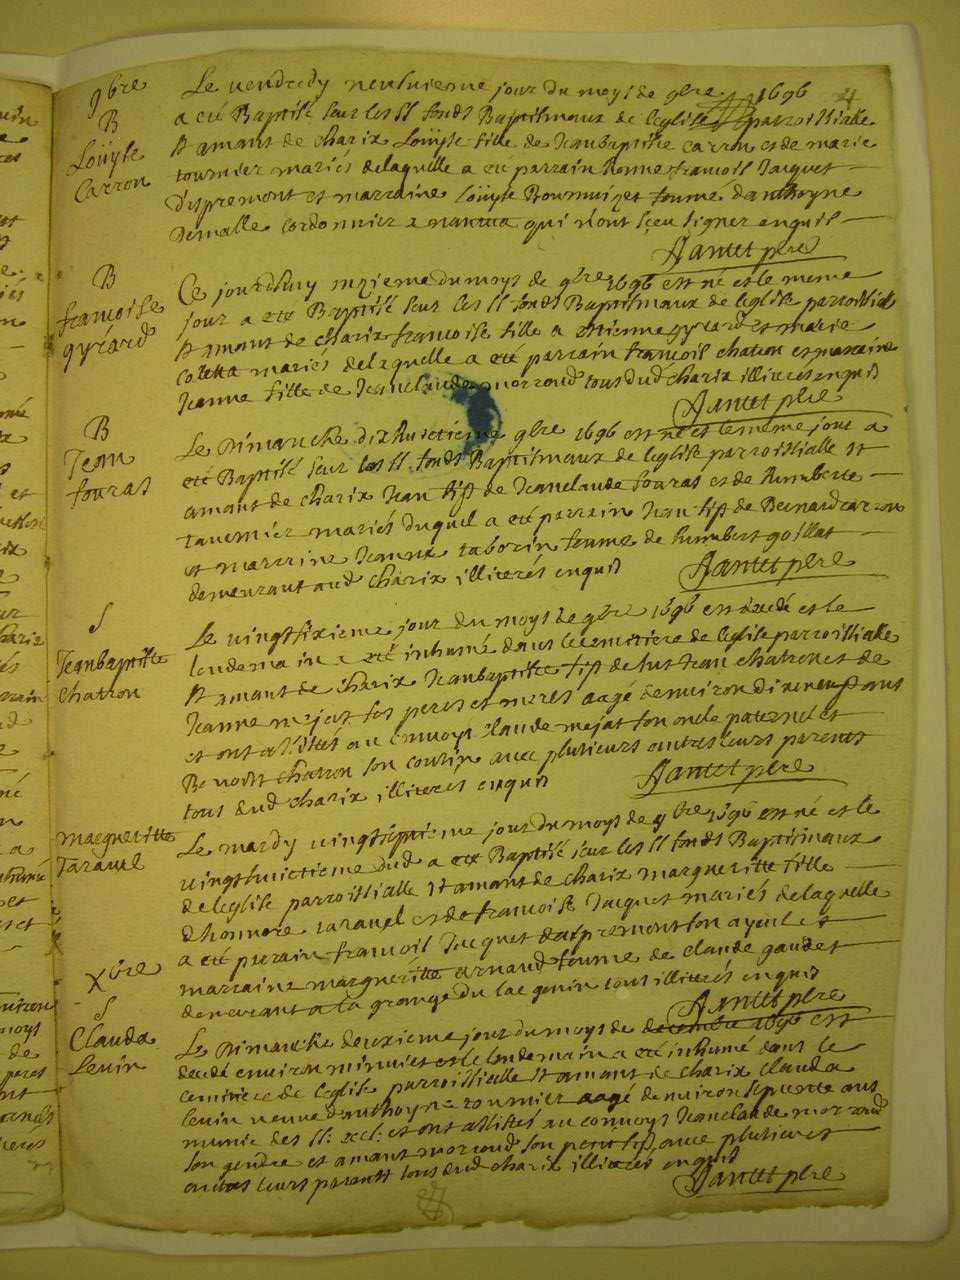 9bre
B
Loüyse
Carron
Le vendredy neufvieme jour du moys de 9bre 1696
a eté Baptisé seur les SS fonds Baptismaux de leglise parroissialle
St amant de charix Loüyse fille de Jeanbaptiste Carron et de marie
tournier mariés delaquelle a eté parrain honne francois Jacquet
d'aspremont et marraine Loüyse femme danthoyne
Demalle cordonnier a nantua qui n'ont sçeu signer enquis
Jantet pbre
B
francoise
gyrard
Ce jourdhuy onzieme du moys de 9bre 1696 est né et le meme
jour a eté Baptisé seur les SS fonds Baptismaux de leglise parroissialle
St amant de charix francoise fille a estienne gyrard et marie
Coletta mariés delaquelle a eté parrain francois chatron et marraine
Jeanne fille de Jeanclaude morrond tous dud charix illiterés enquis
Jantet pbre
B
Jean
fouras
Le Dimanche dixhuictieme 9bre 1696 est né et le meme jour a
eté Baptisé seur les SS fonds Baptismaux de leglise parroissialle St
amant de charix Jean fils de Jeanclaude fouras et de humberte
tavernier mariés duquel a eté parrain Jean fils de Bernard carron
et marraine Jeanne taborin femme de humbert goillat
demeurant aud charix illiterés enquis
Jantet pbre
S
Jeanbaptiste
chatron
Le vingtsixieme jour du moys de 9bre 1696 est decedé et le
lendemain a eté inhumé dans le cemitiere de leglise parroissialle
St amant de charix Jeanbaptiste fils de fut Jean chatron et de
Jeanne mejat ses peres et meres aagé denviron dixneuf ans
et ont assistés au convoys claude mejat son oncle paternel et
Benoist chatron son cousin avec plusieurs autres leurs parents
tous dud charix illiterés enquis
Jantet pbre
margueritte
Taravel
Le mardy vingtseptieme jour du moys de 9bre 1696 est né et le
vingthuictieme dud a eté Baptisé seur les SS fonds Baptismaux
de leglise parroissialle St amant de charix margueritte fille
dhonnore taravel et de francoise Jacquet mariés delaquelle
a eté parrain francois Jacquet daspremont son ayeul et
marraine margueritte arnaud femme de claude gaudet
demeurant a la grange du lac genin tous illiterés enquis
Jantet pbre
Xbre
S
Clauda
levin
Le Dimanche deuxieme jour du moys de decembre 1696 est
decedé environ minuict et le lendemain a eté inhumé dans le
cemitiere de leglise parroissialle St amant de charix clauda
levin veuve d'anthoyne tournier aagé denviron septante ans
munie des SS: et ont assistés au convoys Jeanclaude morrond
son gendre et amant morrond son petit fils avec plusieurs
autres leurs parents tous dud charix illiterés enquis
Jantet pbre